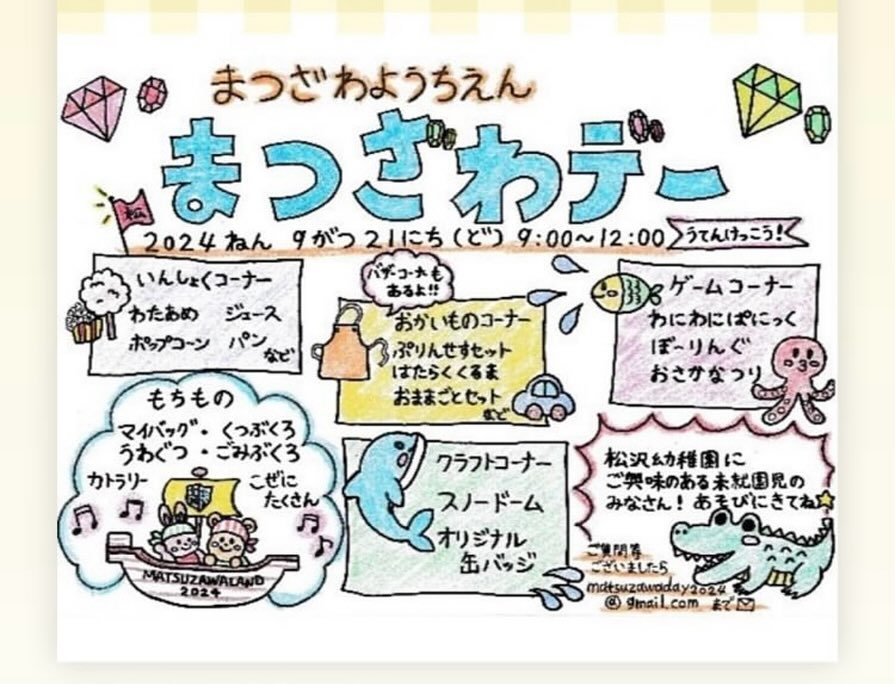 まつざわようちえん
まつざわデー
松
2024ねん 9がつ21にち(ど) 9:00〜12:00
うてんけっこう!
いんしょくコーナー
わたあめ ジュース
ポップコーン パン
など
バザーコーナーも
あるよ!!
おかいものコーナー
ぷりんせすセット
はたらくくるま
おままごとセット
など
ゲームコーナー
わにわにぱにっく
ぼーりんぐ
おさかなつり
もちもの
マイバッグ・くつぶくろ
うわぐつ・ごみぶくろ
カトラリー
こぜに
たくさん
MATSUZAWALAND
2024
クラフトコーナー
スノードーム
オリジナル
缶バッジ
松沢幼稚園に
ご興味のある未就園児の
みなさん!あそびにきてね
ご質問等
ございましたら
matsuzawaday2024
@gmail.com まで